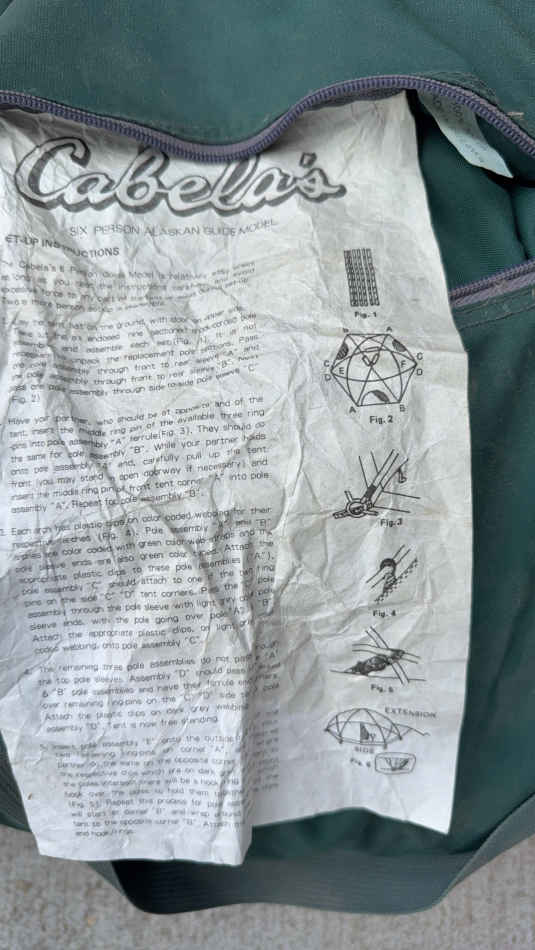 Cabela's
SIX PERSON ALASKAN GUIDE MODEL
ET-UP INSTRUCTIONS
The Cabela's 6 Person Guide Model is relatively easy
you read the instructions carefully and avoid
force to any part of the tent
three person
the tent flat on the ground, with door
sectioned shock-corded pole
assembly and assemble each set (Fig. 1). If
unpack the replacement pole sections. Pass
pole assembly through front to rear sleeve "A" and
pole assembly through front to rear sleeve "B".
pass one pole assembly through side to side pole sleeve "C"
(Fig. 2)
Have your partner, who should be at opposite end of the
tent, insert the middle ring pin of the available three ring
pins into pole assembly "A" ferrule (Fig. 3). They should do
the same for pole assembly "B". While your partner holds
onto pole assembly and, carefully pull up the tent
front (you may stand in open doorway if necessary) and
insert the middle ring pin of front tent corner "A" into pole
assembly "A". Repeat for pole assembly "B".
Each arch has plastic clips on color coded webbing for their
respective arches (Fig. 4). Pole assembly "A" and "B"
arches are color coded with green color web straps and the
pole sleeve ends are also green color coded. Attach the
appropriate plastic clips to these pole assemblies "A"),
pole assembly "C" should attach to one of the two ring
pins on the side "C" "D" tent corners. Pass the "C" pole
assembly through the pole sleeve with light grey
sleeve ends, with the pole going over pole "A" "B"
Attach the appropriate plastic clips, on light grey
coded webbing, onto pole assembly "C".
4. The remaining three pole assemblies do not pass through
the top pole sleeves. Assembly "D" should pass "A"
& "B" pole assemblies and have they ferrule end
over remaining ring-pins on the "C" "D" side
Attach the plastic clips on dark grey webbing
assembly "D". Tent is now free standing.
5. Insert pole assembly "E" onto the outside
two remaining ring-pins on corner "A",
partner do the same on the opposite corner
the respective clips which are on dark
the poles intersect there will be a hook
hook over the poles to hold them together
(Fig. 5). Repeat this process for pole
will start at corner "B" and wrap around
tent to the opposite corner "B". Attach
and hook/rings.
Fig. 1
B A
C C
D E F D
A B
Fig. 2
Fig. 3
Fig. 4
Fig. 5
EXTENSION
SIDE
Fig. 6